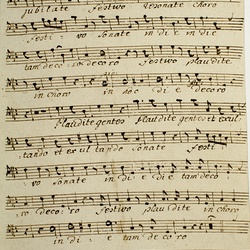 jubilate Festivo Resonate choro
Festi - vo Sonate in di e in die
tam deco ro decoro festivo plaudite
in choro in hoc di e decoro
Plaudite gentes Plaudite gentes et exul
tando et exultando Sonate Festi
vo Sonate in di e die tam deco
ro decoro festivo plaudite in choro
in di e tam decoro